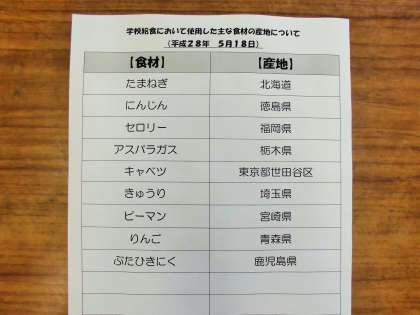 学校給食において使用した主な食材の産地について
(平成28年 5月18日)
【食材】 【産地】
たまねぎ 北海道
にんじん 徳島県
セロリー 福岡県
アスパラガス 栃木県
キャベツ 東京都世田谷区
きゅうり 埼玉県
ピーマン 宮崎県
りんご 青森県
ぶたひきにく 鹿児島県